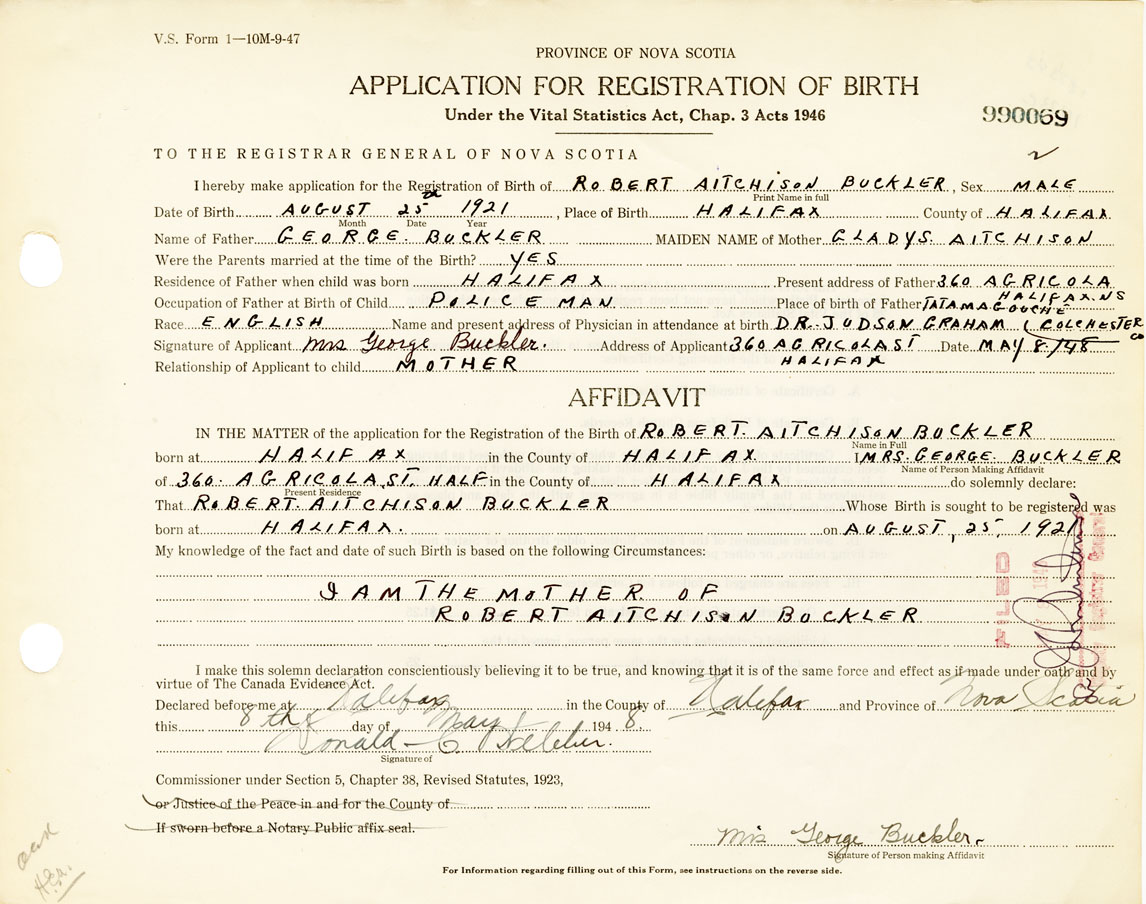 V.S. Form 1—10M-9-47
PROVINCE OF NOVA SCOTIA
APPLICATION FOR REGISTRATION OF BIRTH
Under the Vital Statistics Act, Chap. 3 Acts 1946
990069
TO THE REGISTRAR GENERAL OF NOVA SCOTIA
I hereby make application for the Registration of Birth of ROBERT AITCHISON BUCKLER, Sex MALE
Print Name in full
Date of Birth AUGUST 25th 1921, Place of Birth HALIFAX County of HALIFAX
Month Date Year
Name of Father GEORGE BUCKLER MAIDEN NAME of Mother GLADYS AITCHISON
Were the Parents married at the time of the Birth? YES
Residence of Father when child was born HALIFAX Present address of Father 360 AGRICOLA
HALIFAX. NS
Occupation of Father at Birth of Child POLICEMAN Place of birth of Father TATAMAGOUCHE
Race ENGLISH Name and present address of Physician in attendance at birth DR. JUDSON GRAHAM (COLCHESTER
CO
Signature of Applicant Mrs George Buckler. Address of Applicant 360 AGRICOLA ST Date MAY 8/48
Relationship of Applicant to child MOTHER HALIFAX
AFFIDAVIT
IN THE MATTER of the application for the Registration of the Birth of ROBERT. AITCHISON BUCKLER
Name in Full
born at HALIFAX in the County of HALIFAX I MRS. GEORGE. BUCKLER
Name of Person Making Affidavit
of 360. AGRICOLA ST. HALF in the County of HALIFAX do solemnly declare:
Present Residence
That ROBERT. AITCHISON BUCKLER Whose Birth is sought to be registered was
born at HALIFAX. on AUGUST, 25, 1921
My knowledge of the fact and date of such Birth is based on the following Circumstances:
I AM THE MOTHER OF
ROBERT AITCHISON BUCKLER
FILED
I make this solemn declaration conscientiously believing it to be true, and knowing that it is of the same force and effect as if made under oath and by
virtue of The Canada Evidence Act.
Declared before me at Halifax in the County of Halifax and Province of Nova Scotia
this 8th day of May 1948.
Donald C.
Signature of
Commissioner under Section 5, Chapter 38, Revised Statutes, 1923,
or Justice of the Peace in and for the County of
If sworn before a Notary Public affix seal.
Mrs George Buckler.
Signature of Person making Affidavit
For Information regarding filling out of this Form, see instructions on the reverse side.